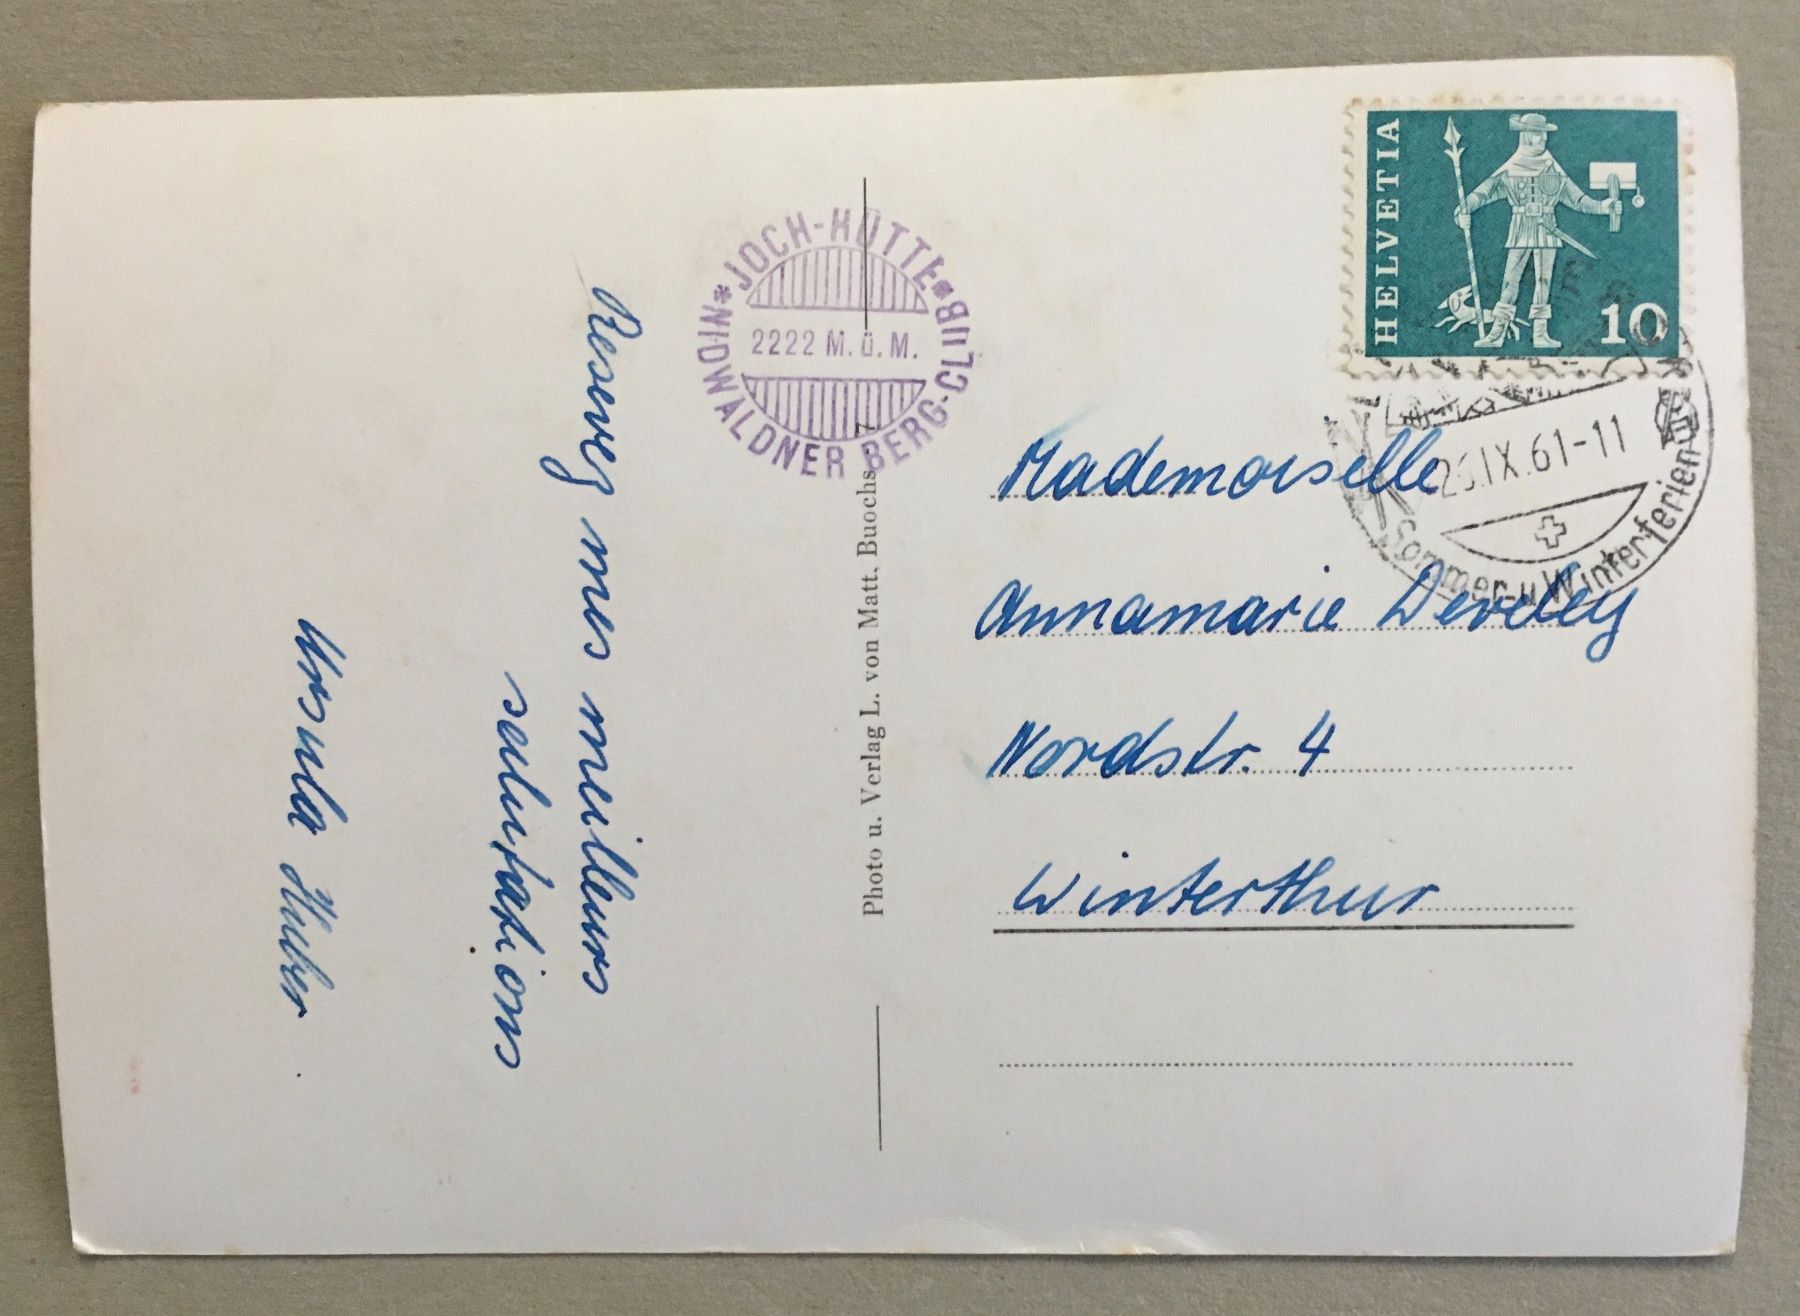 Reserveg mes meilleurs
salutations
Ursula Huber
JOCH-HÜTTE
2222 M.ü.M.
NIDWALDNER BERG-CLUB
Photo u. Verlag L. von Matt, Buochs
HELVETIA
10
IX.61-11
Sommer-u Winterferien
Mademoiselle
Annamarie Develey
Nordstr. 4
Winterthur